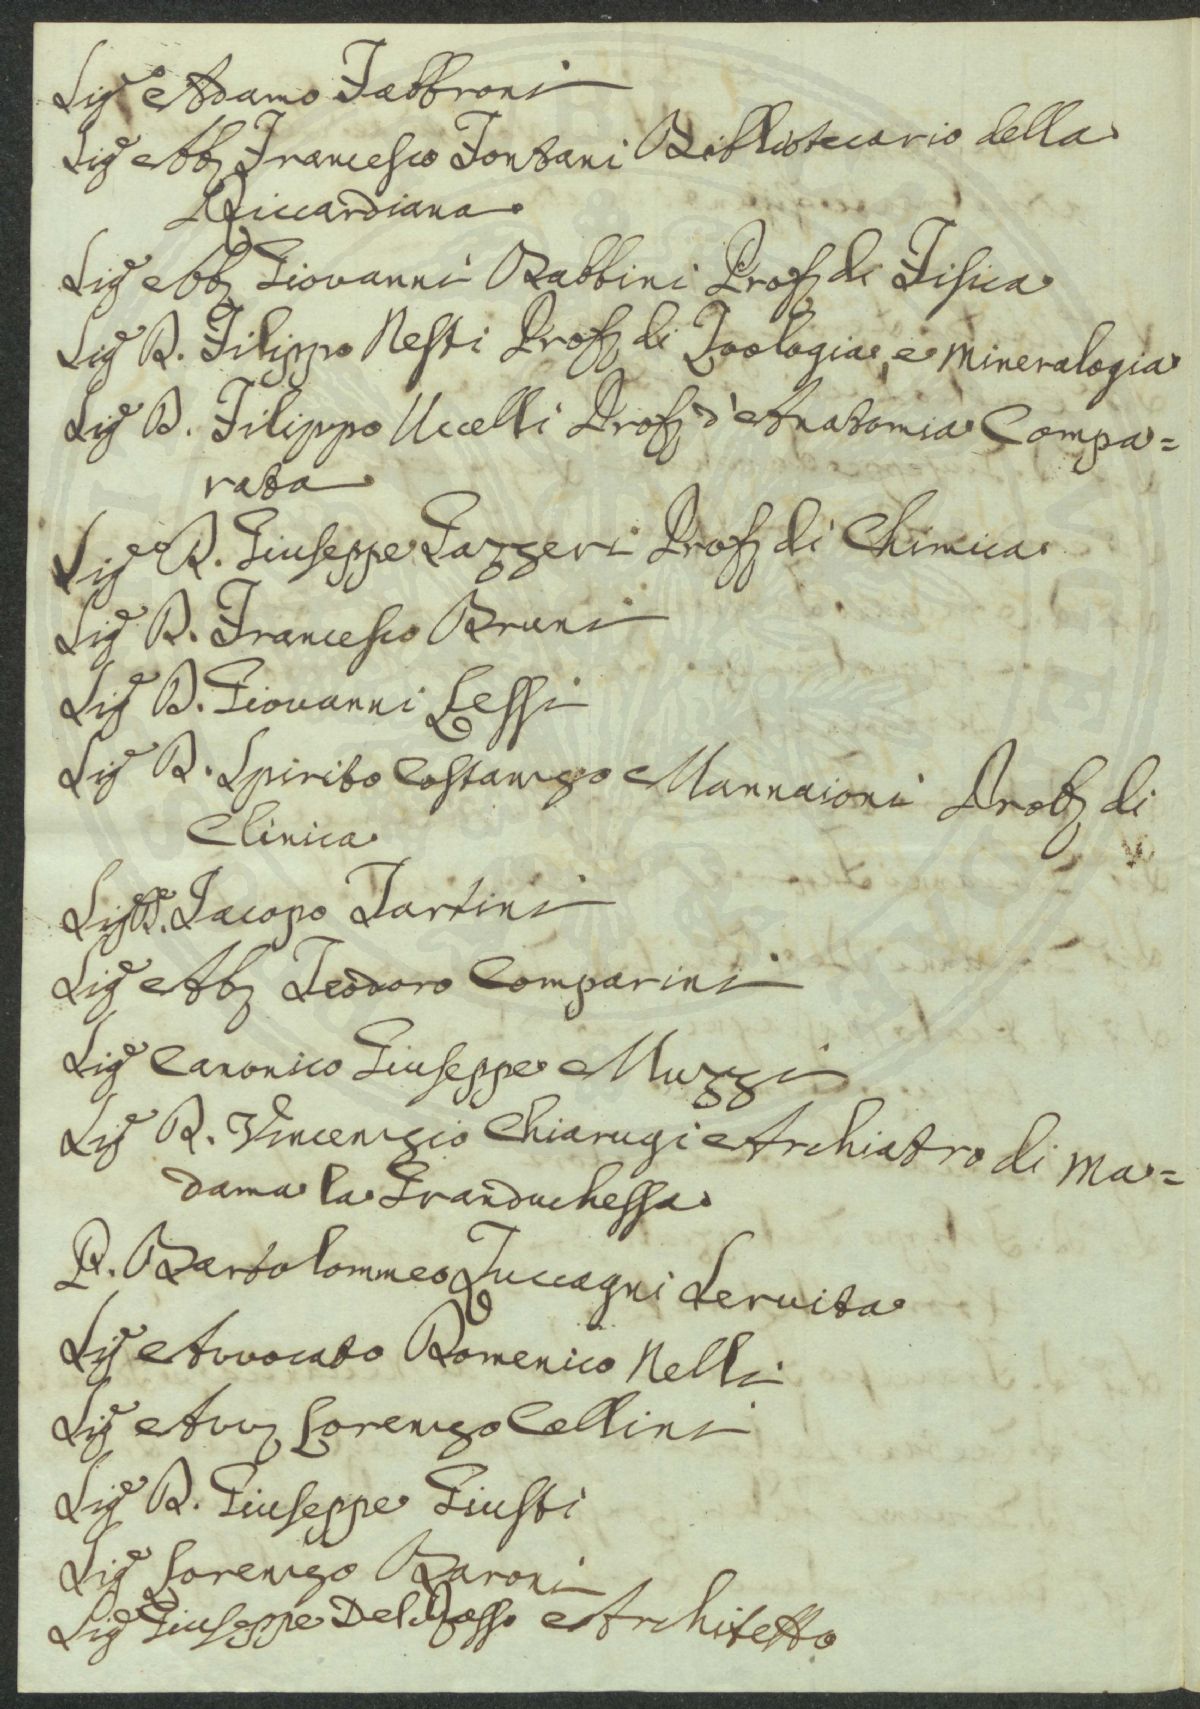 Sig.e Adamo Fabbroni
Sig.e Abb. Francesco Fontani Bibliotecario della
Riccardiana
Sig.e Abb. Giovanni Babbini Prof. di Fisica
Sig.e D. Filippo Nesti Prof. di Zoologia, e Mineralogia
Sig.e D. Filippo Uccelli Prof. d'Anatomia Compa=
rata
Sig.e D. Giuseppe Gazzeri Prof. di Chimica
Sig.e D. Francesco Bruni
Sig.e D. Giovanni Lessi
Sig.e D. Spirito Costanzo Mannaioni Prof. di
Clinica
Sig.e D. Jacopo Tartini
Sig.e Abb. Teodoro Comparini
Sig.e Canonico Giuseppe Muzzi
Sig.e D. Vincenzio Chiarugi Archiatro di Ma=
dama la Granduchessa
P. Bartolommeo Zuccagni Servita
Sig.e Avvocato Domenico Nelli
Sig.e Avv. Lorenzo Collini
Sig.e D. Giuseppe Giusti
Sig.e Lorenzo Baroni
Sig.e Giuseppe Del Rosso Architetto